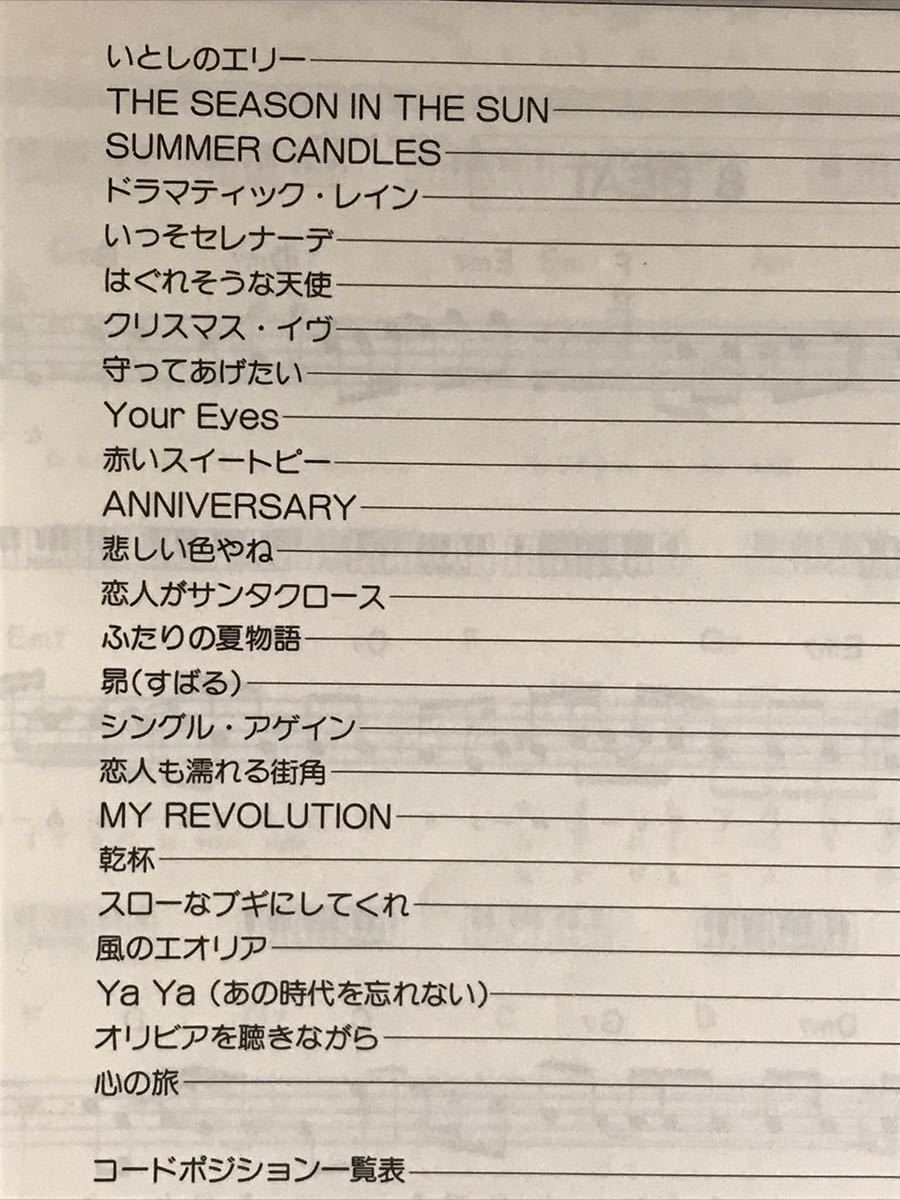 いとしのエリー
THE SEASON IN THE SUN
SUMMER CANDLES
ドラマティック・レイン
いっそセレナーデ
はぐれそうな天使
クリスマス・イヴ
守ってあげたい
Your Eyes
赤いスイートピー
ANNIVERSARY
悲しい色やね
恋人がサンタクロース
ふたりの夏物語
昴(すばる)
シングル・アゲイン
恋人も濡れる街角
MY REVOLUTION
乾杯
スローなブギにしてくれ
風のエオリア
Ya Ya (あの時代を忘れない)
オリビアを聴きながら
心の旅
コードポジション一覧表